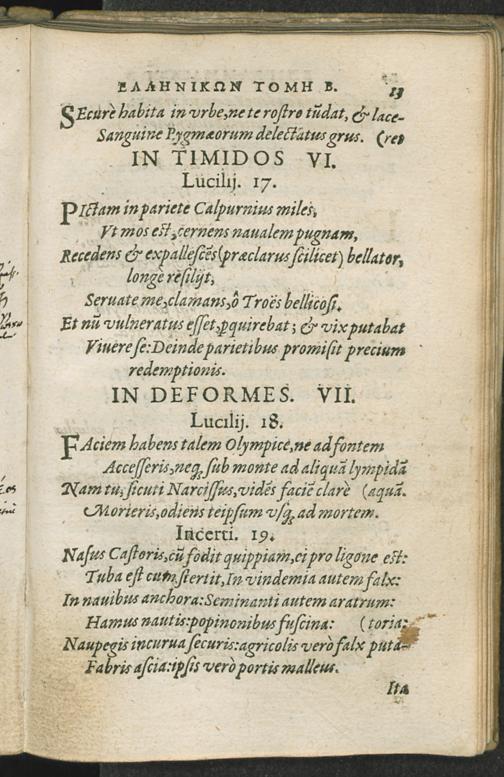 ΕΛΛΗΝΙΚΩΝ ΤΟΜΗ Β. 13
SEcurè habita in vrbe, ne te rostro tūdat, & lace-
Sanguine Pygmæorum delectatus grus. (ret
IN TIMIDOS VI.
Lucilij. 17.
PIctam in pariete Calpurnius miles,
Vt mos est, cernens naualem pugnam,
Recedens & expallescēs (præclarus scilicet) bellator,
longè resilijt,
Seruate me, clamans, ô Troës bellicosi.
Et nū vulneratus esset, pquirebat; & vix putabat
Viuere se: Deinde parietibus promisit precium
redemptionis.
IN DEFORMES. VII.
Lucilij. 18.
FAciem habens talem Olympice, ne ad fontem
Accesseris, neq; sub monte ad aliquā lympidā
Nam tu, sicuti Narcissus, vidēs faciē clarè (aquā.
Morieris, odiens teipsum vsq; ad mortem.
Incerti. 19.
Nasus Castoris, cū fodit quippiam, ei pro ligone est:
Tuba est cum stertit, In vindemia autem falx:
In nauibus anchora: Seminanti autem aratrum:
Hamus nautis: popinonibus fuscina: (toria:
Naupegis incurua securis: agricolis verò falx puta-
Fabris ascia: ipsis verò portis malleus.
Ita